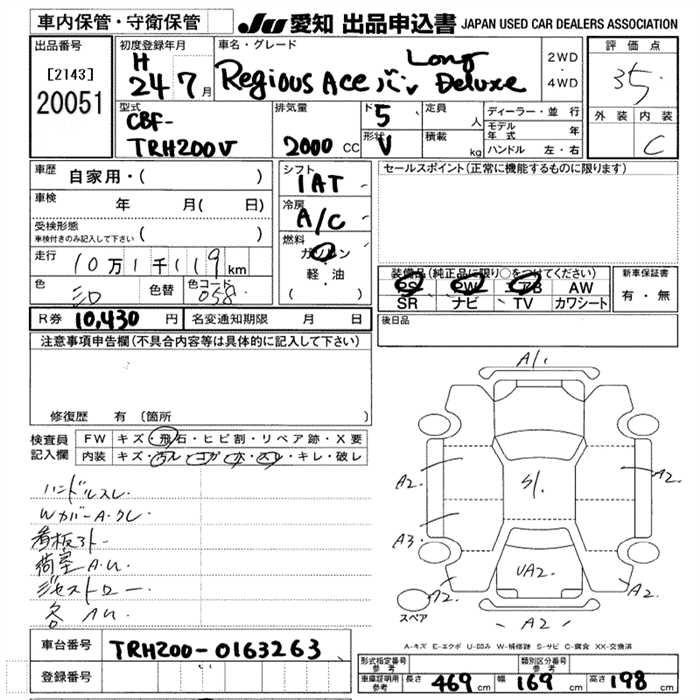 車内保管・守衛保管 JU 愛知 出品申込書 JAPAN USED CAR DEALERS ASSOCIATION
出品番号 [2143] 20051
初度登録年月 H 24 7月
車名・グレード Regious Ace バン Long Deluxe
2WD
4WD
評価点 3.5
外装 内装 C
型式 CBF-TRH200V
排気量 2000 CC
ド 5
形状 V
定員 人
積載 kg
ディーラー・並行
モデル年式 年
ハンドル 左・右
車歴 自家用・( )
車検 年 月( 日)
受検形態 車検付きのみ記入して下さい ( )
走行 10万1千119km
色 シロ 色替 色コード 058
シフト IAT
冷房 A/C
燃料 ガソリン・軽油 ( )
セールスポイント(正常に機能するものに限ります)
装備品(純正品に限り○をつけてください)
PS PW エアB AW
SR ナビ TV カワシート
新車保証書
有・無
R券 10,430円 名変通知期限 月 日
後日品
注意事項申告欄(不具合内容等は具体的に記入して下さい)
修復歴 有 (箇所
検査員記入欄
FW キズ・飛石・ヒビ割・リペア跡・X要
内装 キズ・汚レ・コゲ・穴・スレ・キレ・破レ
ハンドルスレ
Wカバー A・クレ
看板ヌト
荷室 A.U.
ジセストロー
各 A.U.
A1
A2
A2
A3
S1
UA2
A2
A2
A2
スペア
A-キズ E-エクボ U-凹み W-補修跡 S-サビ C-腐食 XX-交換済
車台番号 TRH200-0163263
登録番号
型式指定番号 参考
類別区分番号 参考
車庫証明用参考 長さ 469cm 幅 169cm 高さ 198cm